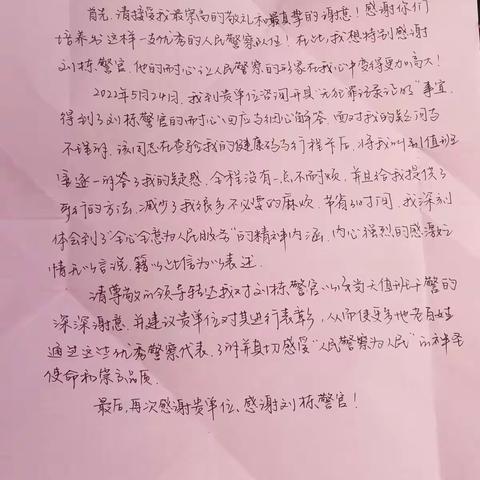 首先，请接受我最崇高的敬礼和最真挚的谢意！感谢你们
培养出这样一支优秀的人民警察队伍！在此，我想特别感谢
刘栋警官，他的耐心让人民警察的形象在我心中变得更加高大！
2022年5月24日，我到贵单位咨询开具"无犯罪记录证明"事宜，
得到了刘栋警官的耐心回应与细心解答，面对我的疑问与
不理解，该同志在查验我的健康码与行程卡后，将我叫到值班
室逐一解答了我的疑惑，全程没有一点不耐烦，并且给我提供了
可行的方法，减少了我很多不必要的麻烦，节省了时间，我深刻
体会到了"全心全意为人民服务"的精神内涵，内心强烈的感激之
情无以言说，籍以此信为以表述。
请尊敬的领导转达我对刘栋警官以及当天值班干警的
深深谢意，并建议贵单位对其进行表彰，从而使更多的老百姓
通过这些优秀警察代表，了解并真切感受"人民警察为人民"的神圣
使命和崇高品质。
最后，再次感谢贵单位、感谢刘栋警官！